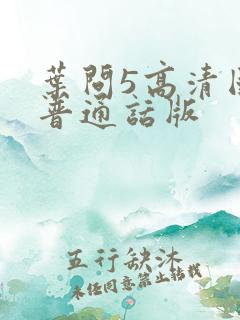 葉問5高清
普通話版
五行缺沐
未经同意禁止转载